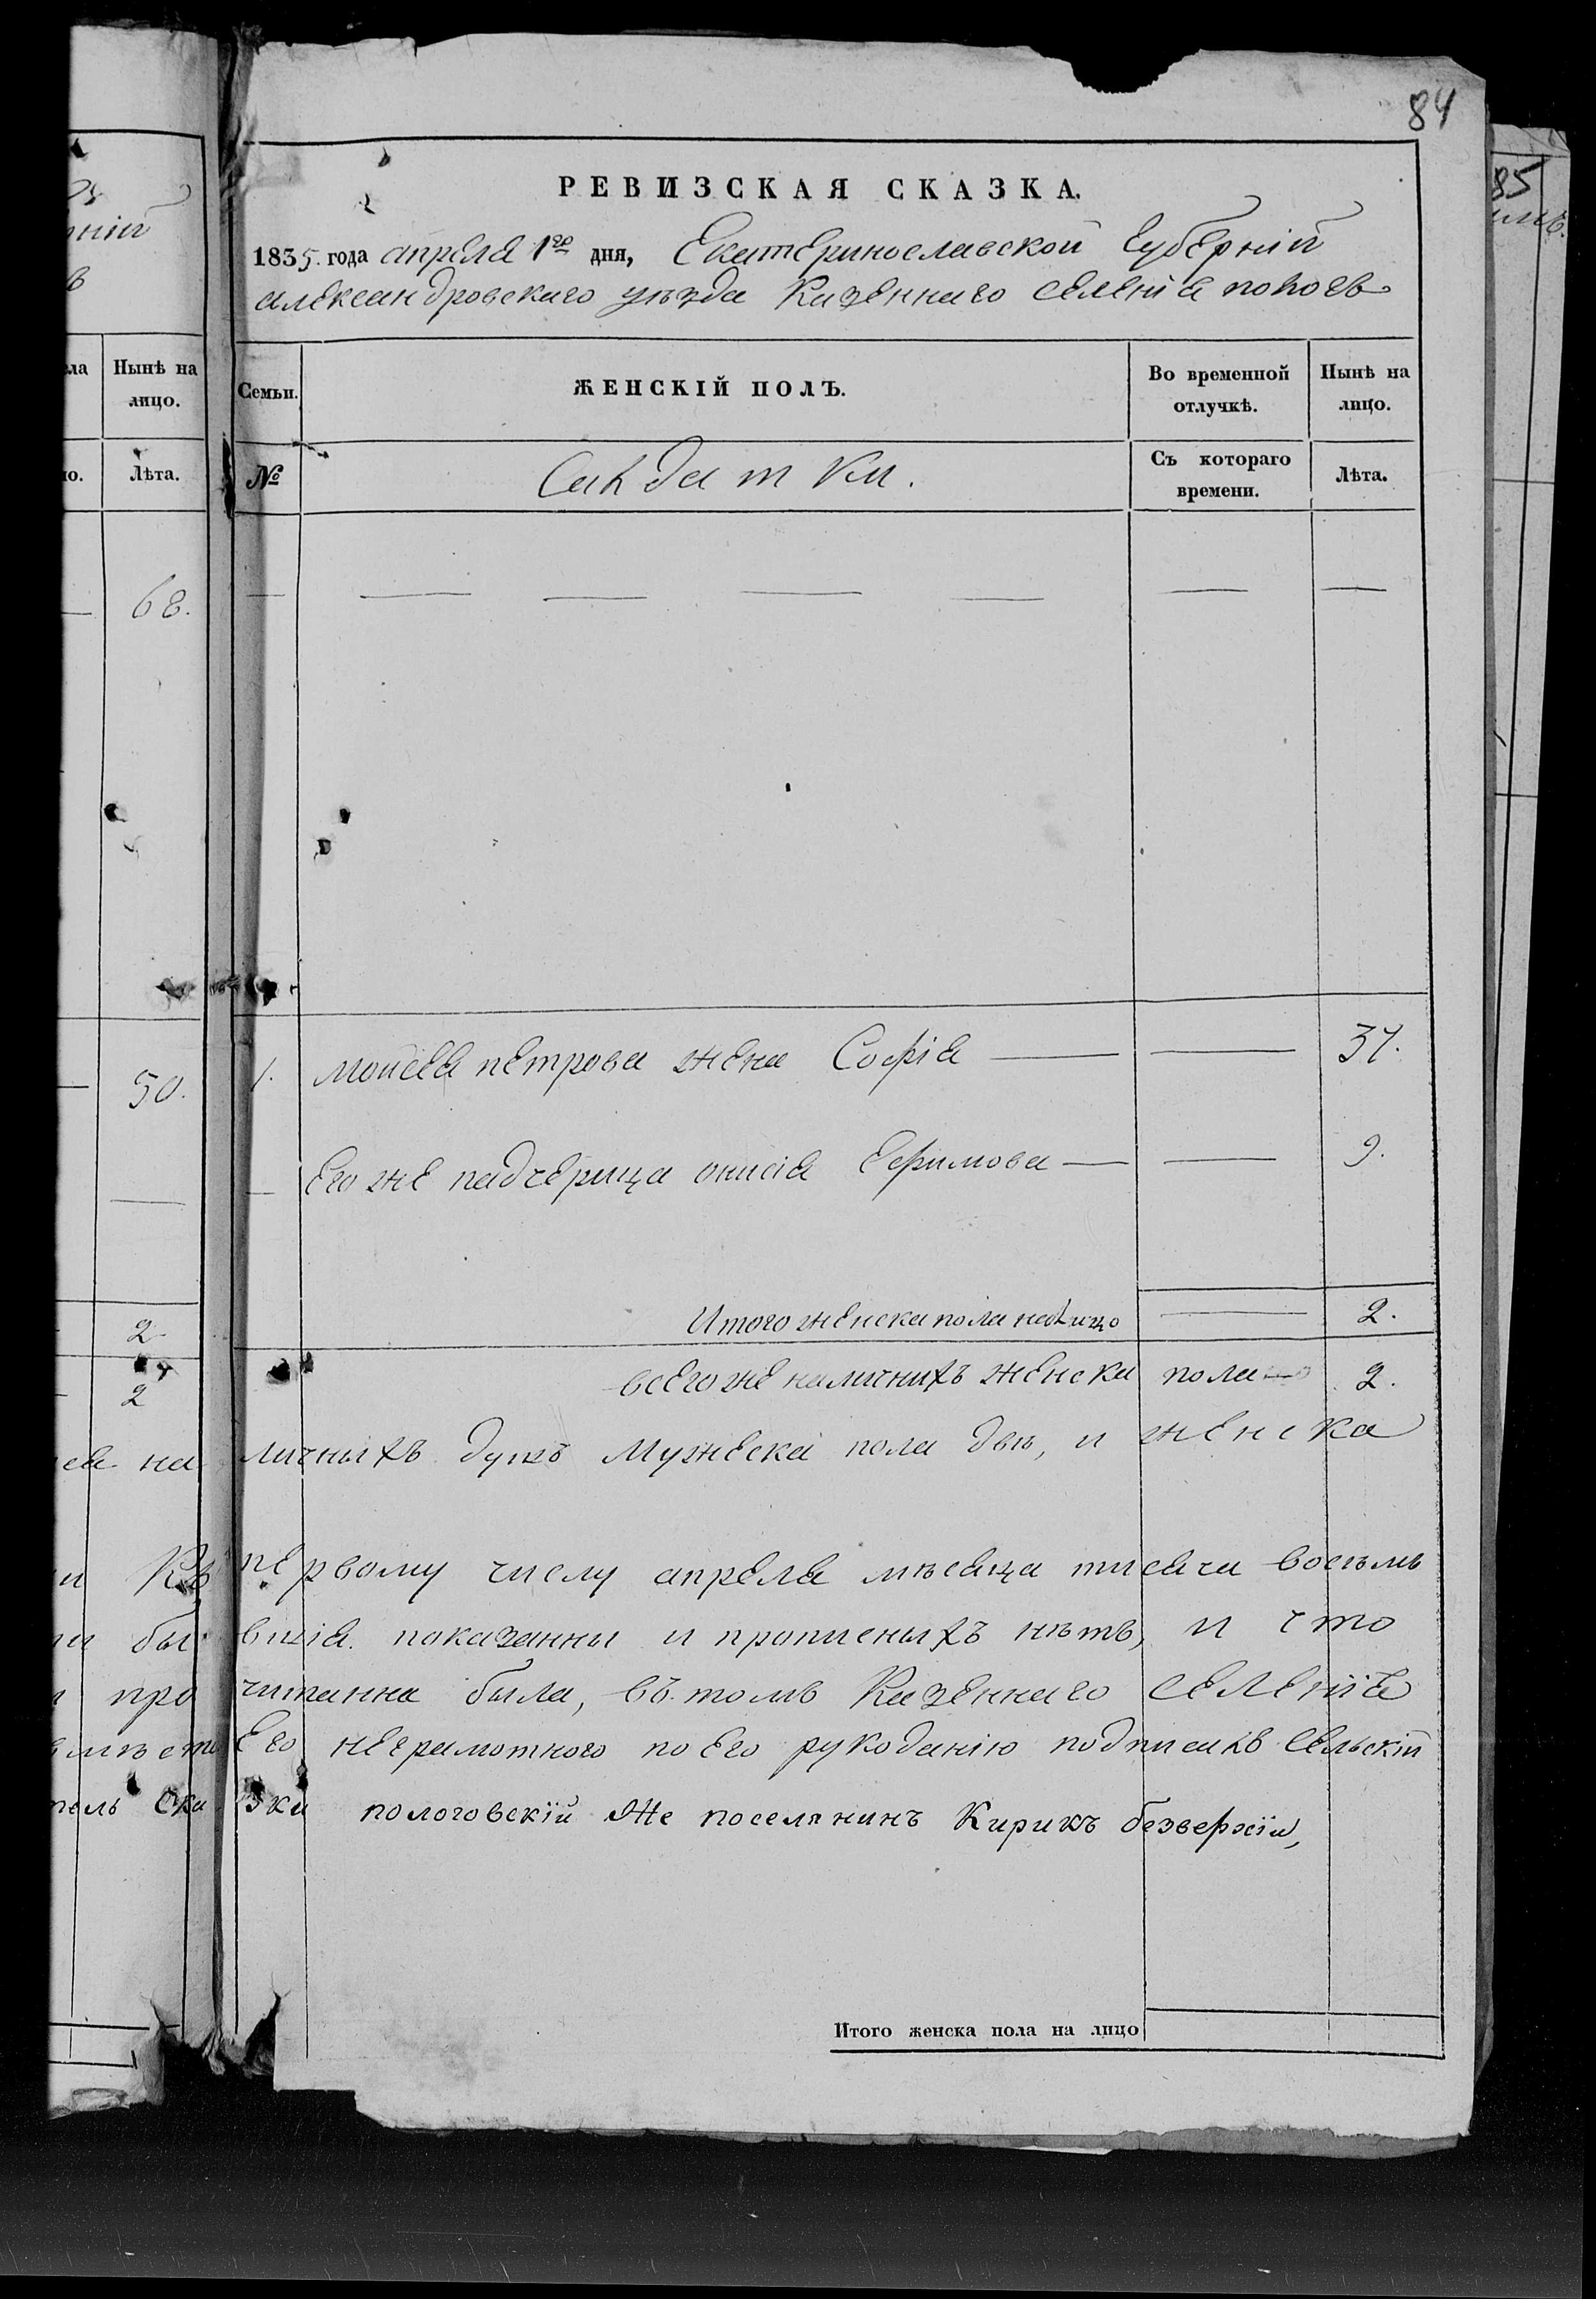 84
РЕВИЗСКАЯ СКАЗКА.
1835 года апреля 1го дня, Екатеринославской Губерніи
александровскаго уезда Казеннаго селенія пологъ
Нынѣ на лицо.
Лѣта.
Семьи.
ЖЕНСКІЙ ПОЛЪ.
Во временной отлучкѣ.
Нынѣ на лицо.
№
Салдатки.
Съ котораго времени.
Лѣта.
68.
50.
1. Мойсея петрова жена Софія — — 37.
— Его же падчерица онисія Ефимова — — 9.
Итого женска пола налицо — 2.
2
всего же наличнихъ женска пола — 2.
2
на личныхъ душъ Мужеска пола две, и женска
Къ первому числу апреля месяца тисяча восемь
бывшія показанны и прописныхъ нѣтъ, и что
прочитанна была, въ томъ Казеннаго селенія
Его неграмотного по Его рукоданію подписалъ Сельскій
Сказки пологовскій же поселянинъ Кирикъ безверхій,
Итого женска пола на лицо
85